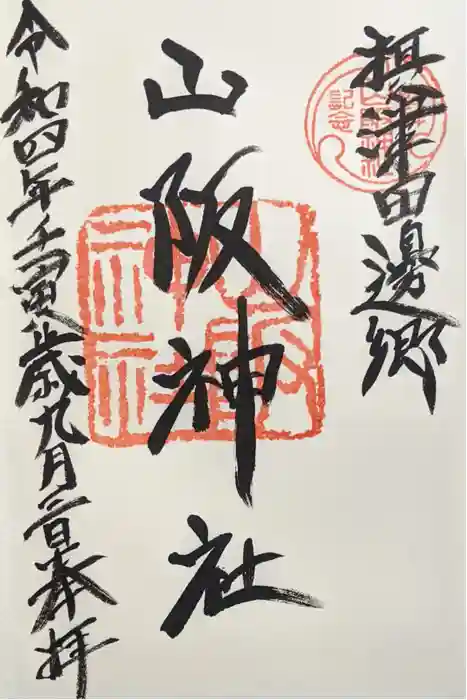 摂津田邊郷
山阪神社
令和四年壬寅歳九月二日奉拝